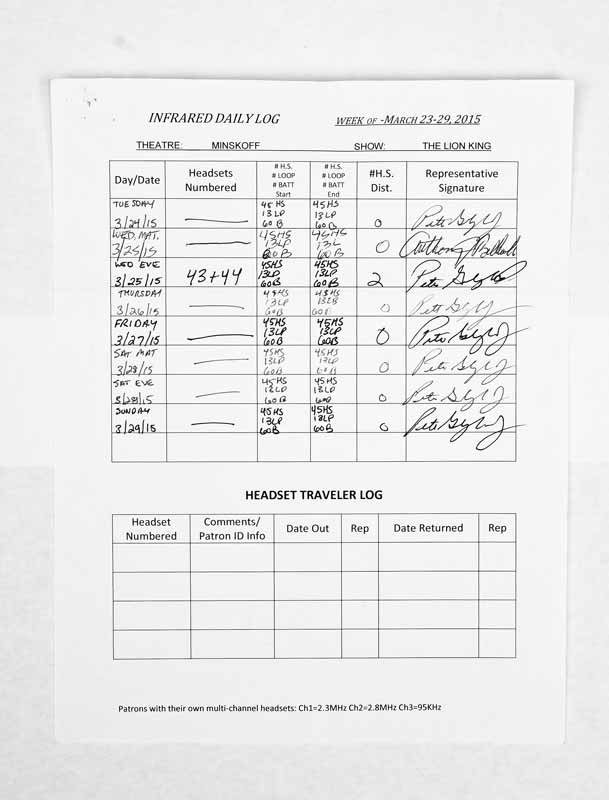 INFRARED DAILY LOG WEEK OF -MARCH 23-29, 2015
THEATRE: MINSKOFF SHOW: THE LION KING
Day/Date
Headsets
Numbered
# H.S.
# LOOP
# BATT
Start
# H.S.
# LOOP
# BATT
End
#H.S.
Dist.
Representative
Signature
TUESDAY
3/24/15
45 HS
13 LP
60 B
45 HS
13 LP
60 B
0
WED. MAT.
3/25/15
45HS
13LP
60 B
45HS
13L
60 B
0
Anthony
WED EVE
3/25/15
43+44
45HS
13LP
60B
45HS
13LP
60B
2
Pete
THURSDAY
3/26/15
45HS
13LP
60B
45HS
13LB
60B
0
Pete
FRIDAY
3/27/15
45HS
13LP
60B
45HS
13LP
60B
0
Pete
SAT MAT
3/28/15
45HS
13LP
60B
45HS
13LP
60B
0
Pete
SAT EVE
3/28/15
45HS
13LP
60B
45HS
13LP
60B
0
Pete
SUNDAY
3/29/15
45HS
13LP
60B
45HS
13LP
60B
0
Pete
HEADSET TRAVELER LOG
Headset
Numbered
Comments/
Patron ID Info
Date Out
Rep
Date Returned
Rep
Patrons with their own multi-channel headsets: Ch1=2.3MHz Ch2=2.8MHz Ch3=95KHz